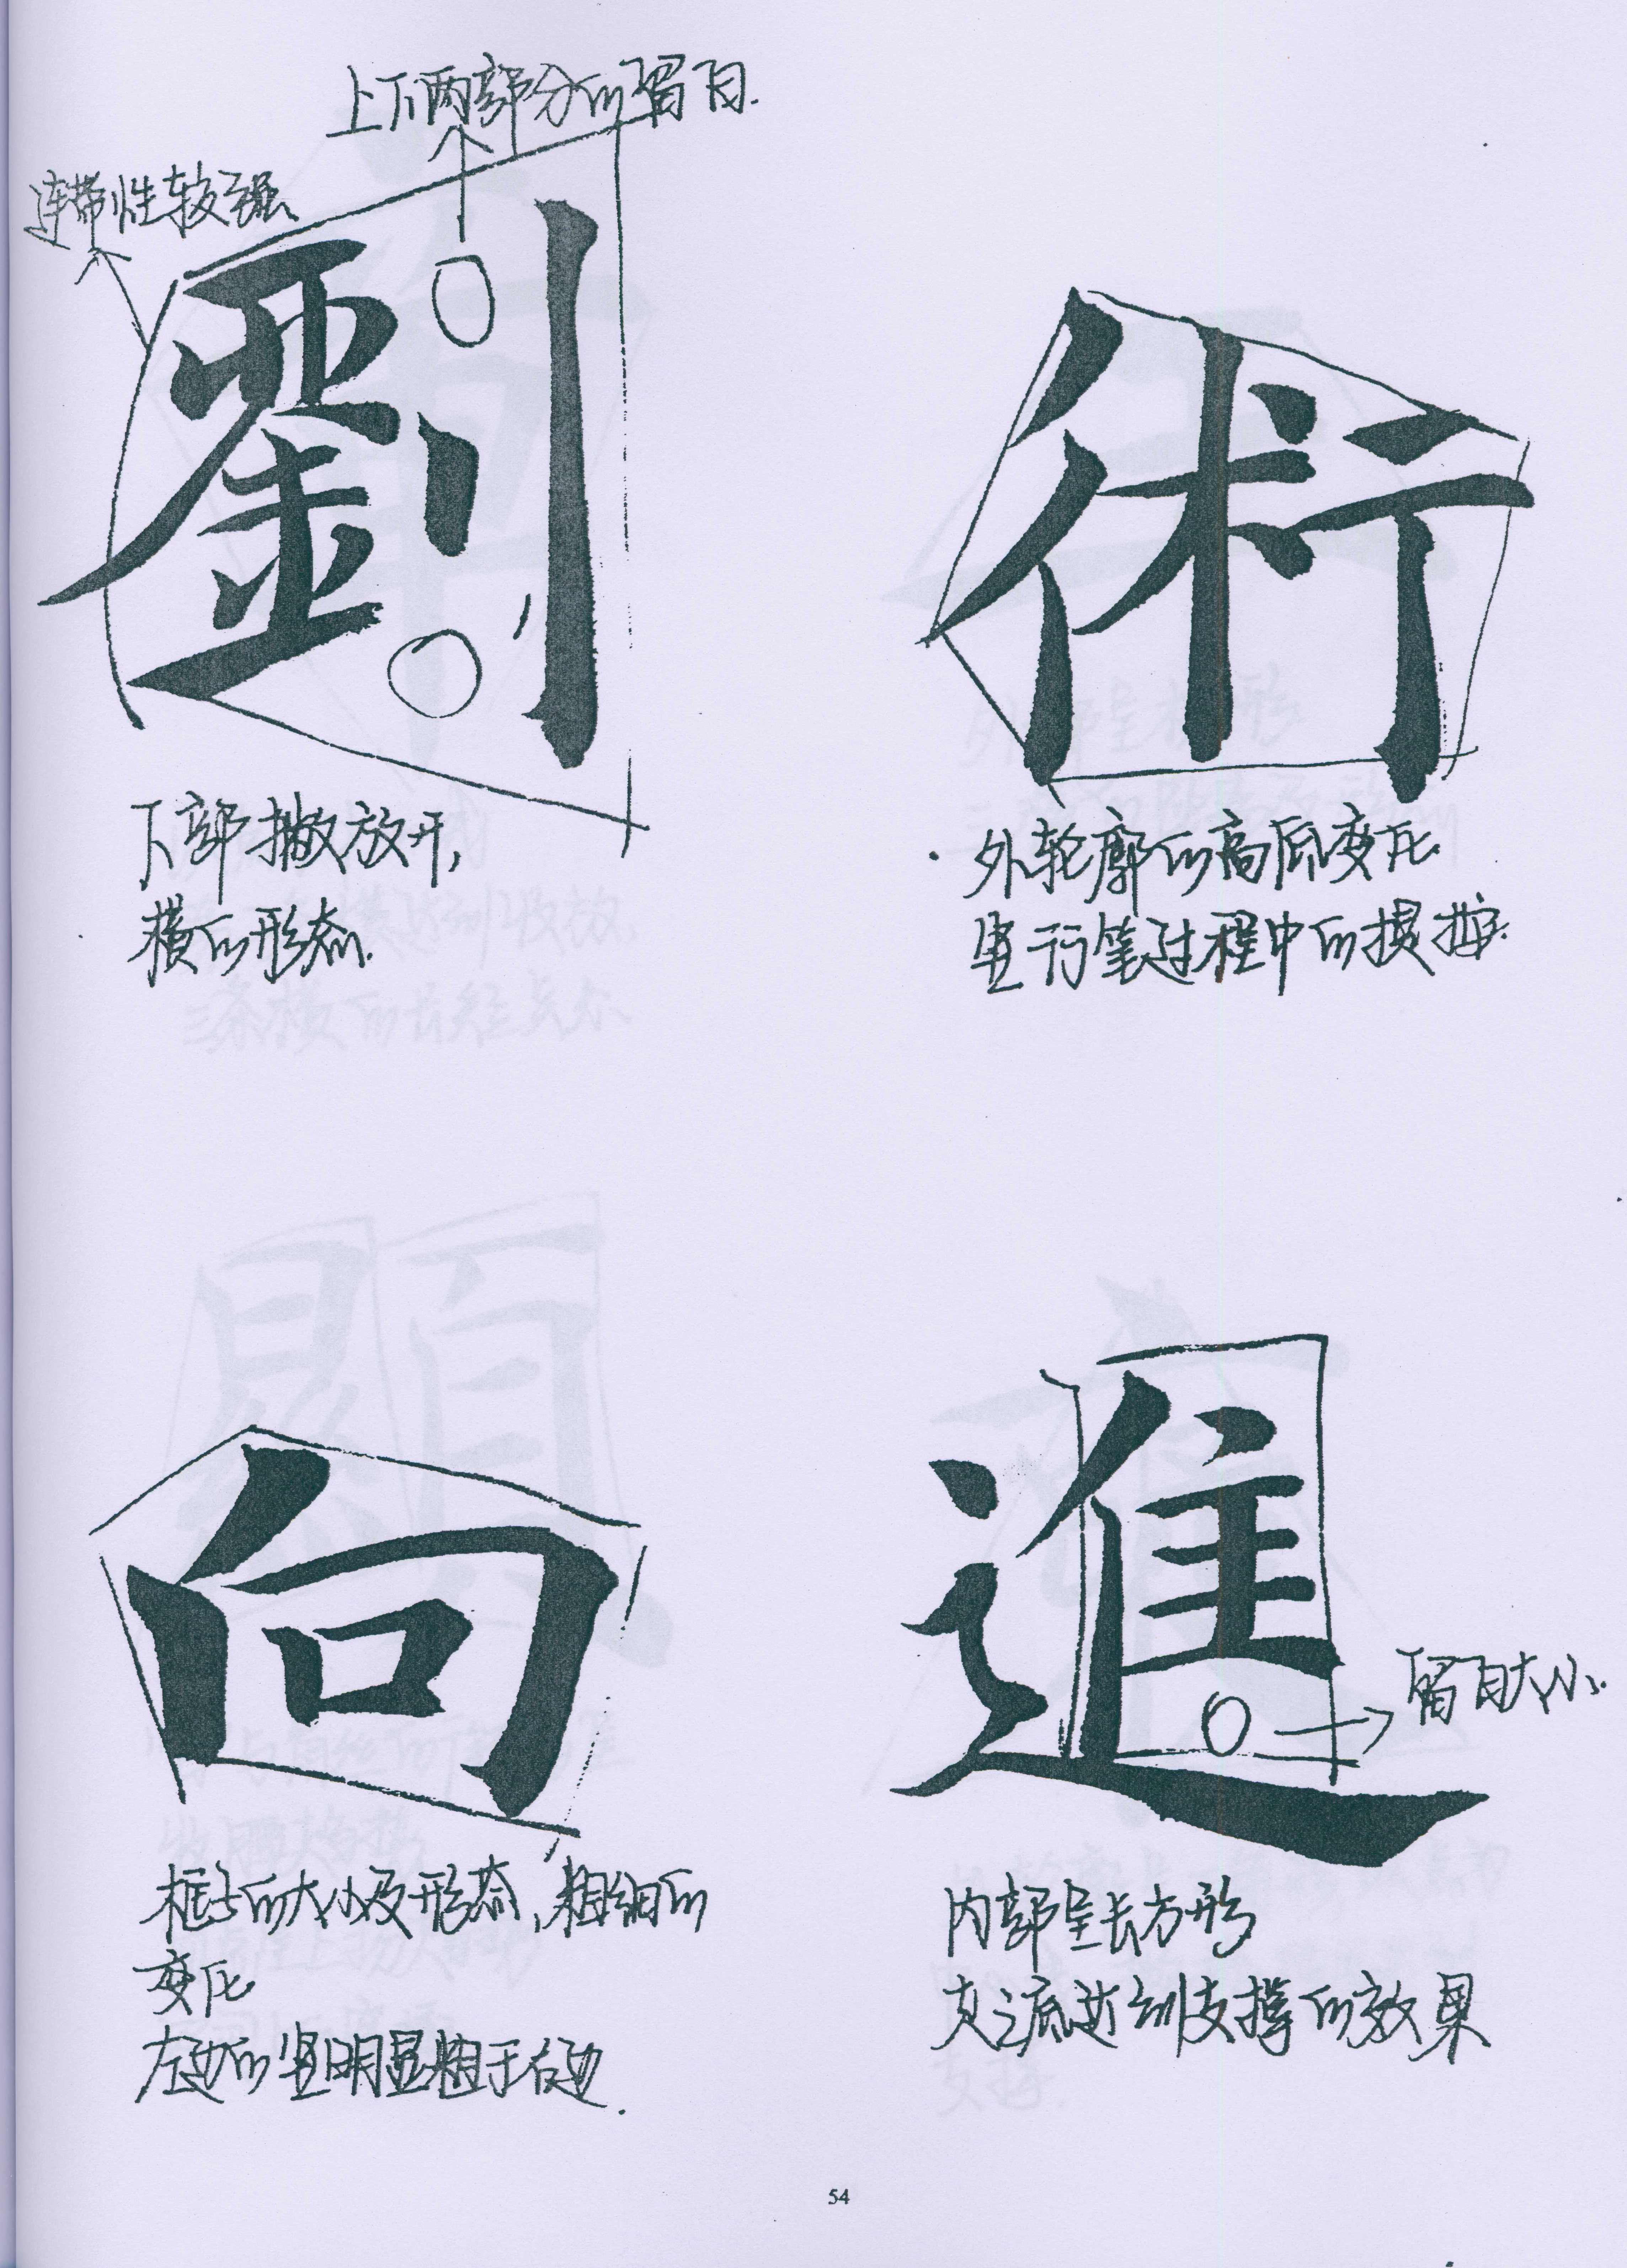 上下两部分的留白.
连带性较强
劉
下部撇放开,
横的形态.
術
外轮廓的高低变化
竖行笔过程中的提按.
向
框子的大小及形态,粗细的
变化
左边的竖明显粗于右边.
進
留白大小.
内部呈长方形
走之底达到支撑的效果
54